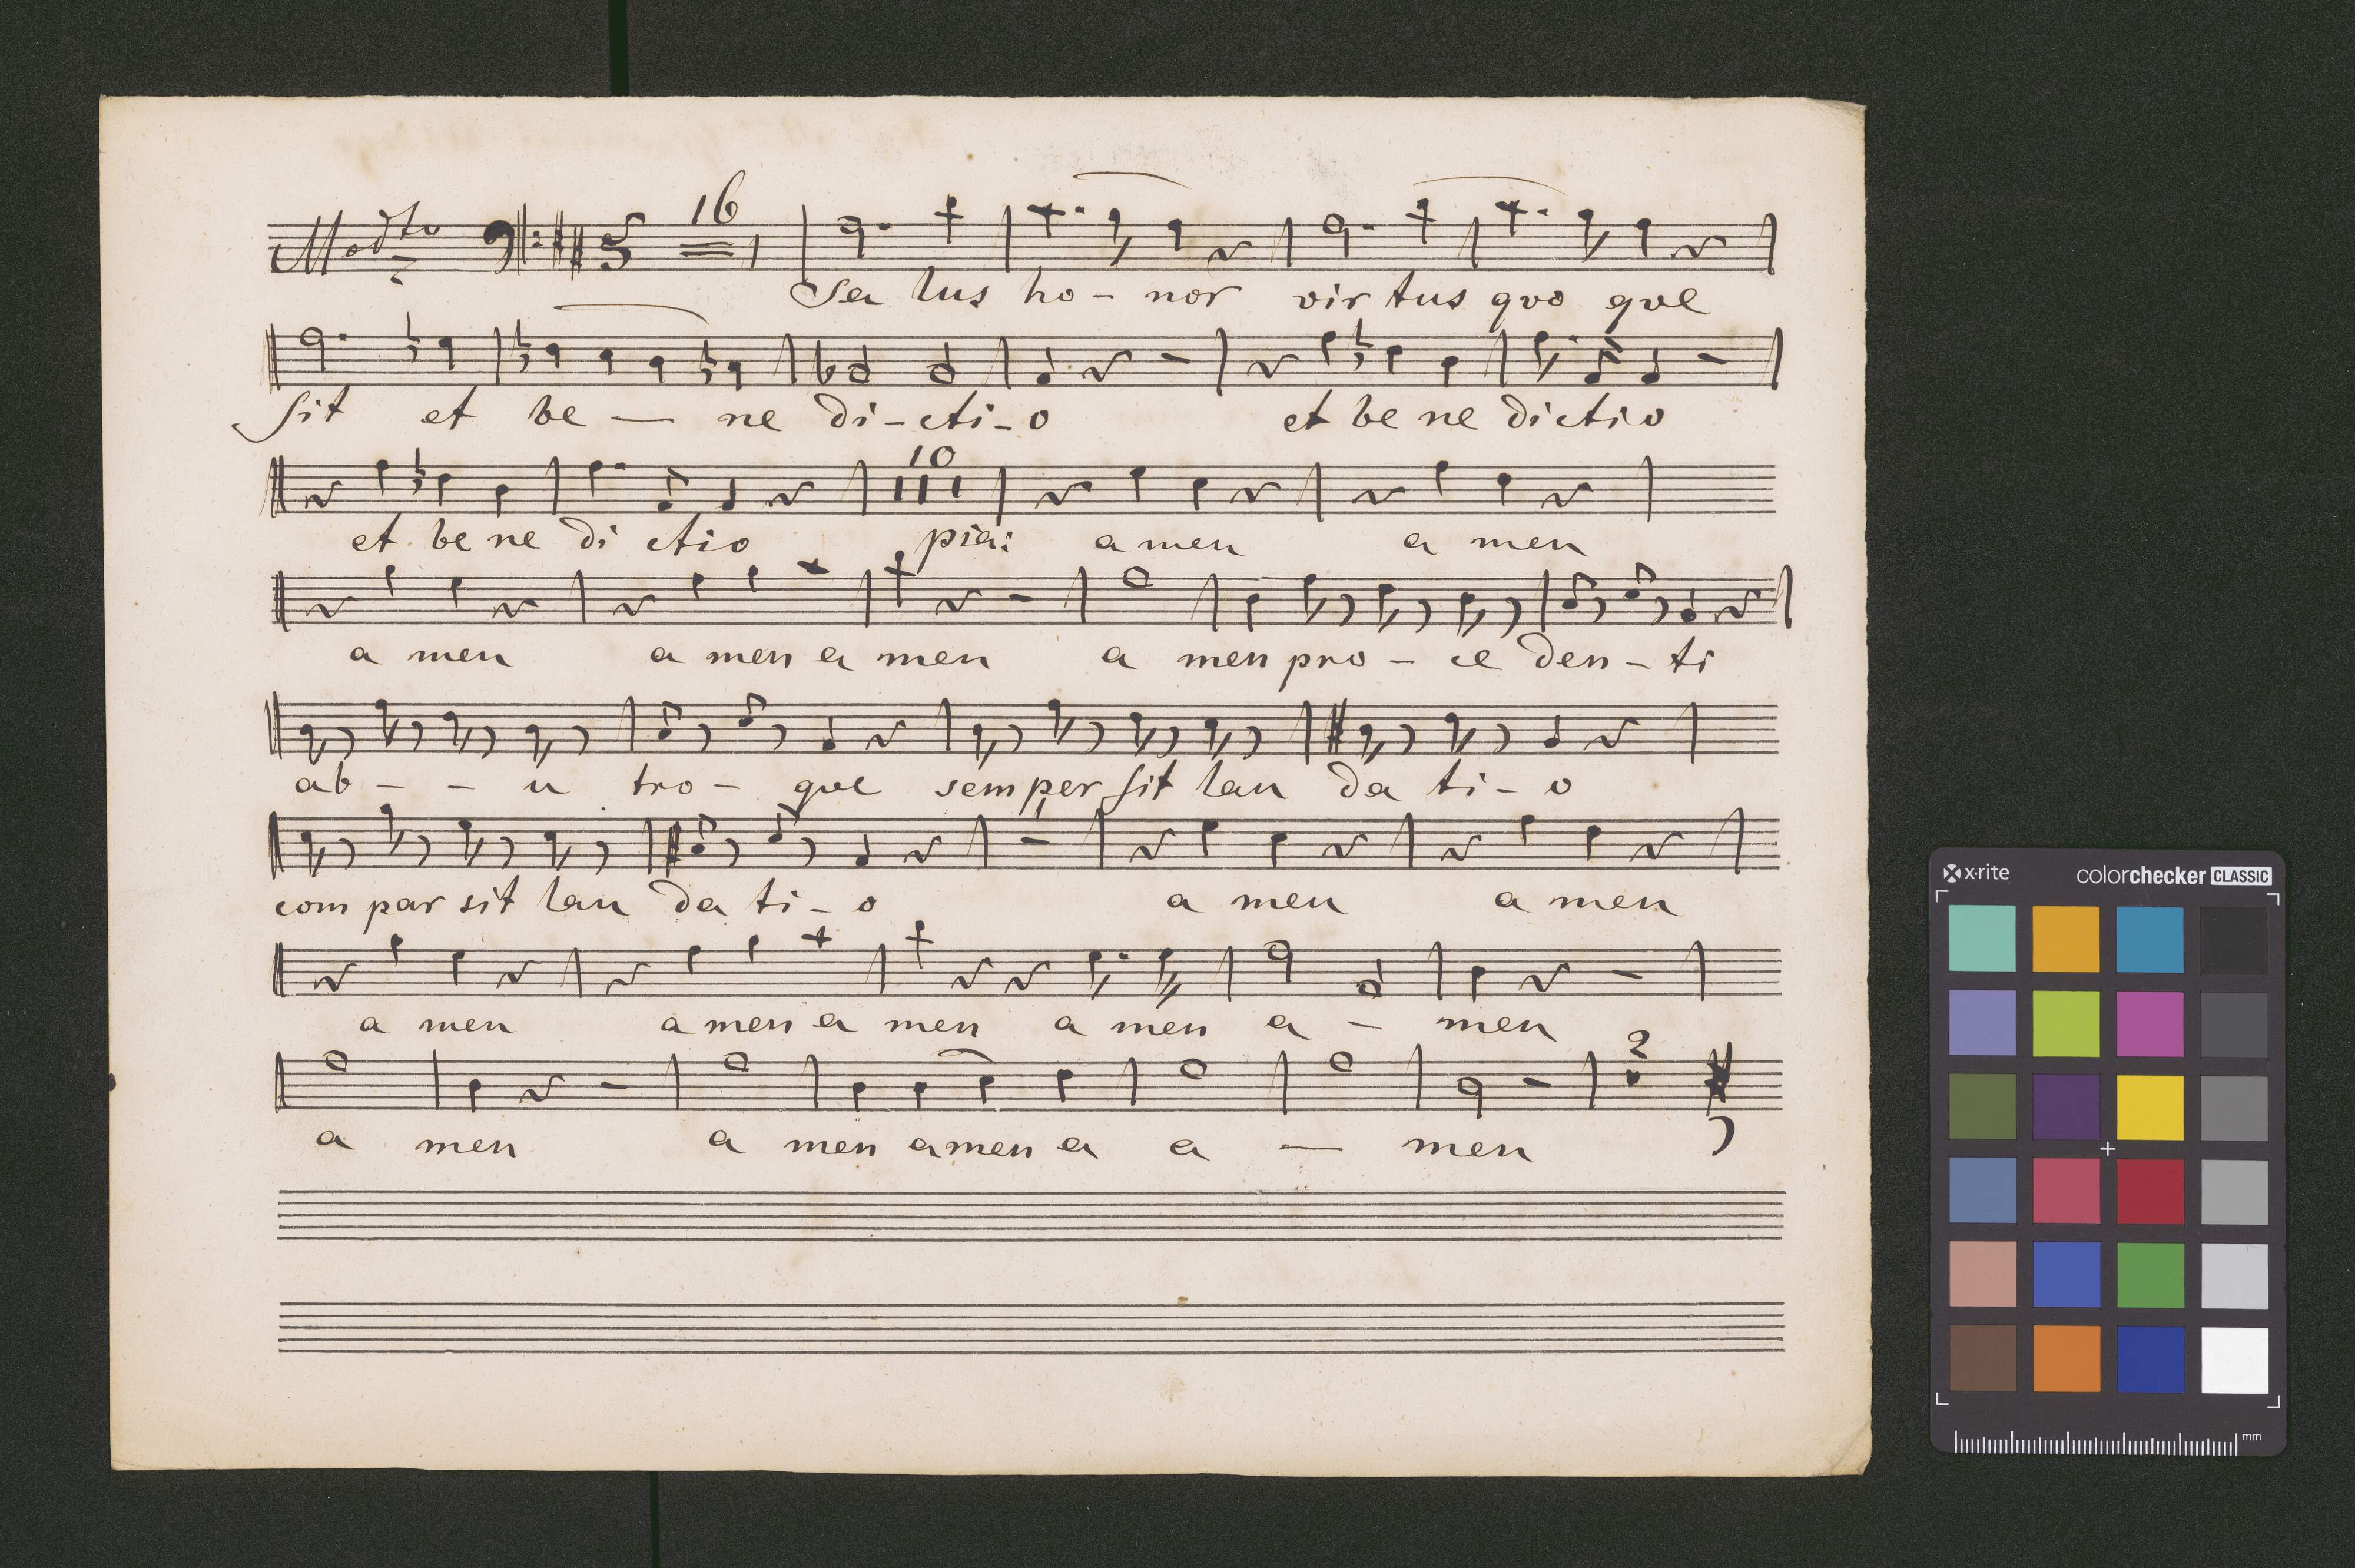 Modto
16
Sa lus ho - nor vir tus quo que
Sit et be — ne di - cti - o et be ne di ctio
10
et be ne di ctio pia: a men a men
a men a men a men a men pro - ce den - ti
ab - - u tro - que semper sit lau da ti - o
com par sit lau da ti - o a men a men
a men a men a men a men a - men
2
a men a men amen a a — men
x·rite colorchecker CLASSIC
mm